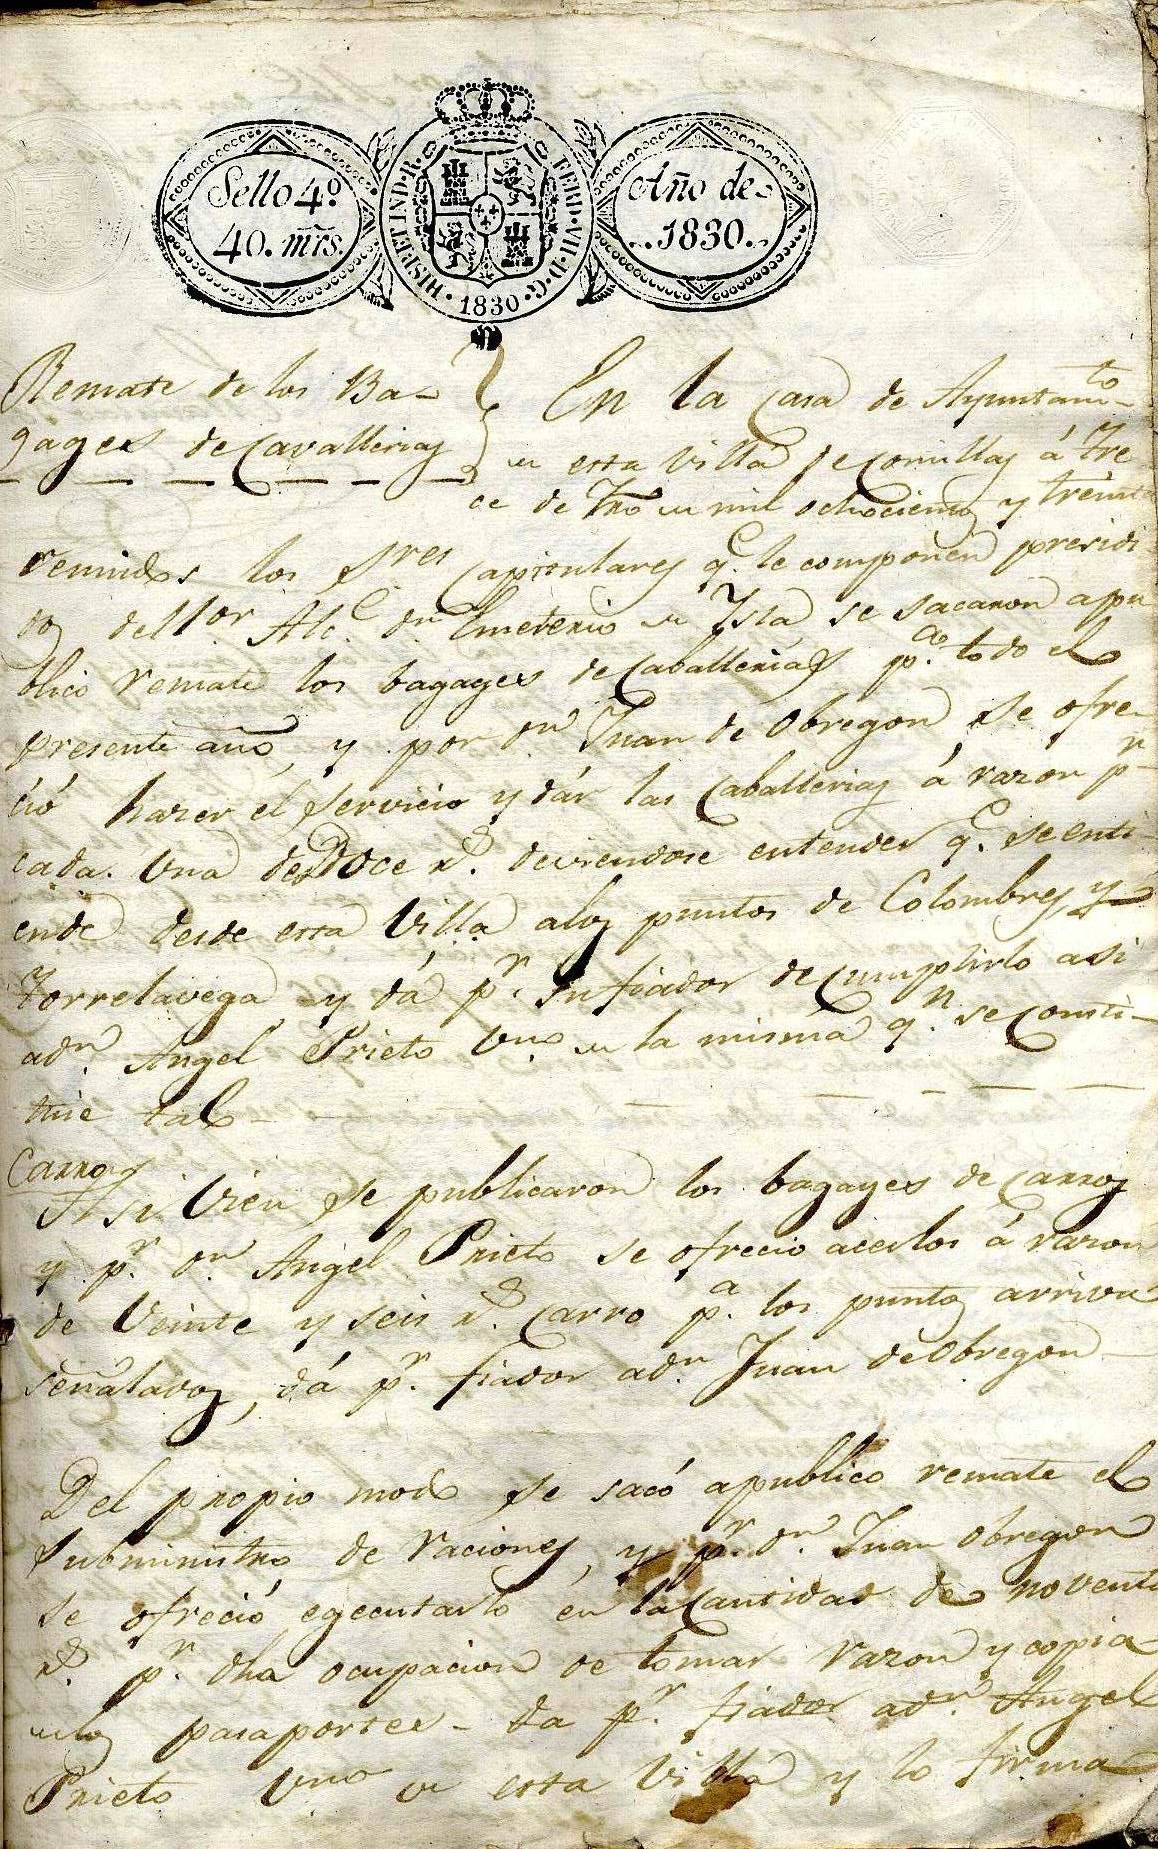 Sello 4º
40. mrs.
HISP. ET IND. R.
FERD. VII. D. G.
1830
Año de
1830.
Remate de los Ba-
gages de Cavallerias
En la Casa de Ayuntamto
en esta Villa de Comillas á tre
ce de Eno en mil ochocientos y treinta
reunidos los Sres Capitulares q.e le componen presidi-
dos del Sor Alc.e dn Emeterio de Isla se sacaron apu
blico remate los bagages de Caballerias p.a todo el
presente año, y por dn Juan de Obregon se ofre-
ció hazer el servicio y dár las Caballerias á razon pr
cada una de Doce rs. deviendose entender q.e se enti-
ende desde esta Villa alos puntos de Colombres, y
Torrelavega y dá p.r su fiador de cumplirlo asi
adn. Angel Prieto Vno en la misma q.n se consti-
tuie tal-
Carros
Asi vien se publicaron los bagages de Carros
y p.r dn. Angel Prieto se ofrecio acerlos á razon
de Veinte y seis rs. Carro p.a los puntos arriva
señalados, dá p.r fiador adn Juan de Obregon-
Del propio modo se sacó apublico remate el
subministro de raciones, y p.r dn. Juan Obregon
se ofreció egecutarlo en la Cantidad de noventa
rs. p.r dha ocupacion de tomar razon y copia
en los pasaportes - da p.r fiador adn. Angel
Prieto Vno en esta Villa y lo firma